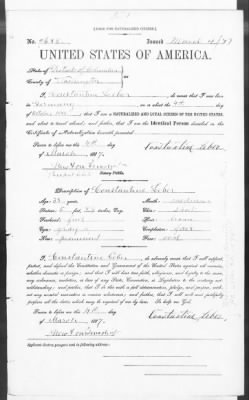 [FORM FOR NATURALIZED CITIZEN.]
No. Issued March
UNITED STATES OF AMERICA.
State of District of Columbia
County of Washington
I, Constantine Leber
Germany, on or about the 4th day of
that I am a NATURALIZED AND LOYAL CITIZEN OF THE UNITED STATES,
and about to travel abroad; and further, that I am the Identical Person described in the
Certificate of Naturalization herewith presented.
Sworn to before me this 4th day Constantine Leber
of March, 1887.
Notary Public.
Description of Constantine Leber
Age: 33 years. Mouth: medium
Stature: 5 feet, inches, Eng. Chin: oval
Forehead: Hair:
Eyes: gray Complexion: fair
Nose: prominent Face: oval
I, Constantine Leber, do solemnly swear that I will support,
protect, and defend the Constitution and Government of the United States against all enemies,
whether domestic or foreign; and that I will bear true faith, allegiance, and loyalty to the same,
any ordinance, resolution, or law of any State, Convention, or Legislature to the contrary not-
withstanding; and further, that I do this with a full determination, pledge, and purpose, with-
out any mental reservation or evasion whatsoever; and further, that I will well and faithfully
perform all the duties which may be required of me by law. So help me God.
Sworn to before me this 4th day
of March, 1887. Constantine Leber
Applicant desires passport sent to following address: